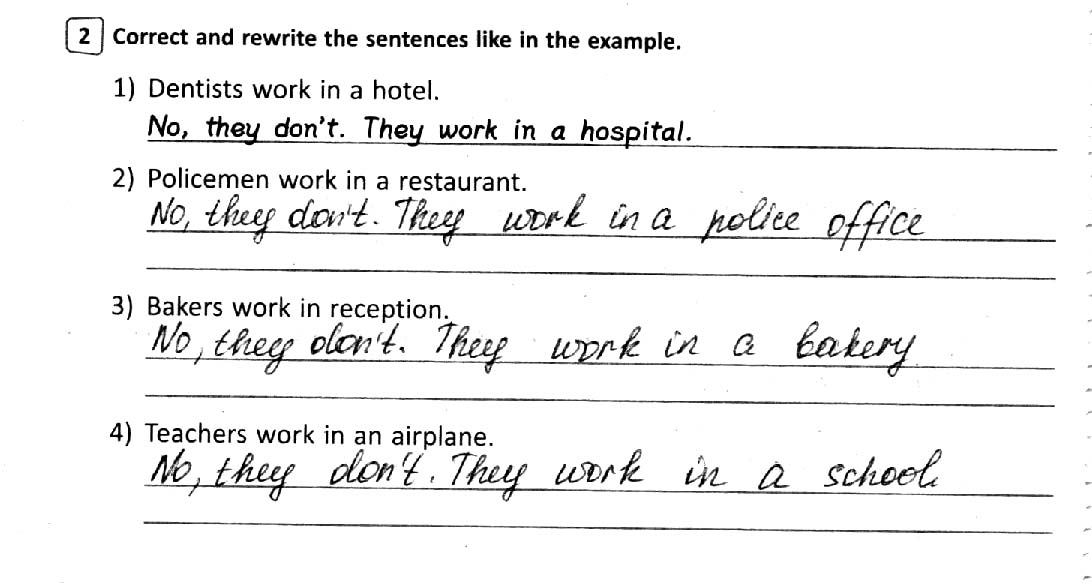 2 Correct and rewrite the sentences like in the example.
1) Dentists work in a hotel.
No, they don't. They work in a hospital.
2) Policemen work in a restaurant.
No, they don't. They work in a police office
3) Bakers work in reception.
No, they don't. They work in a bakery
4) Teachers work in an airplane.
No, they don't. They work in a school